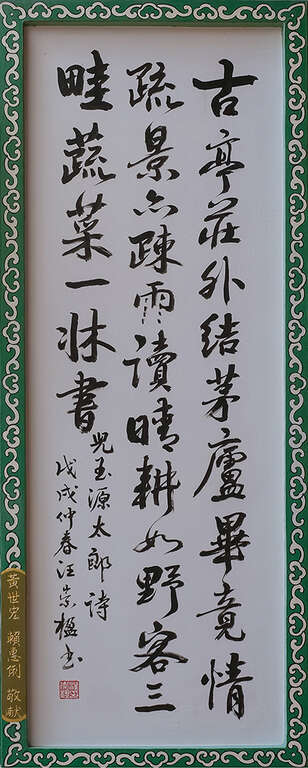 古亭莊外結茅廬畢竟情
疏景亦疎雨讀晴耕如野客三
畦蔬菜一牀書
兒玉源太郎詩
戊戌仲春汪崇楹書
黃世宏 賴惠俐 敬献